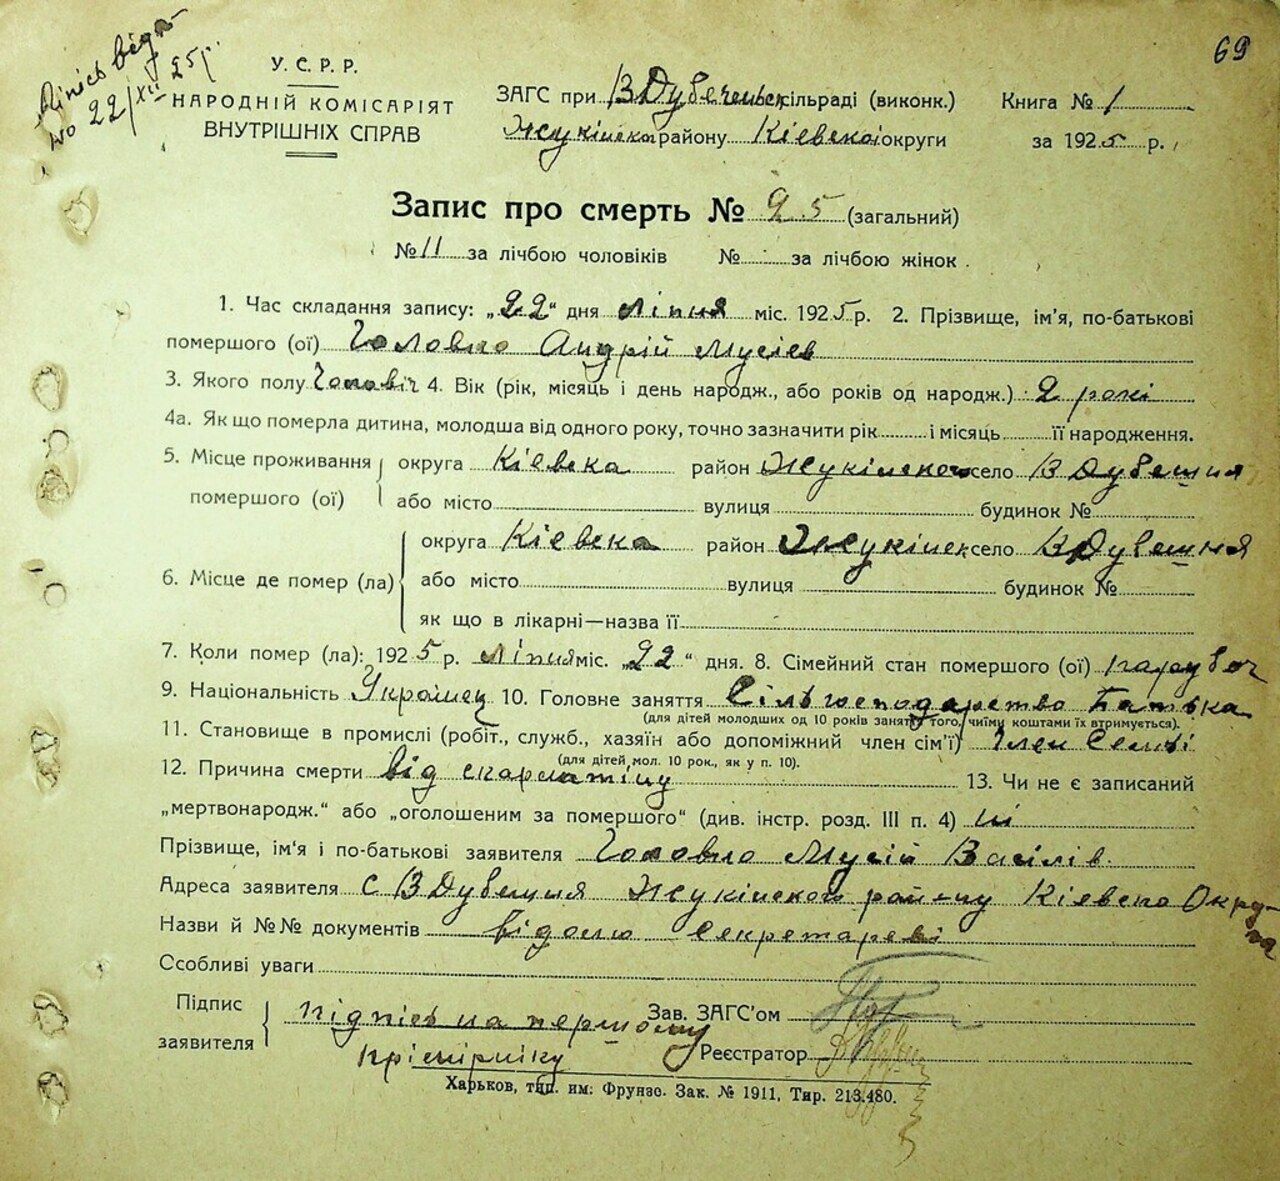 69
22/XII 25
У. С. Р. Р.
НАРОДНІЙ КОМІСАРІЯТ
ВНУТРІШНІХ СПРАВ
ЗАГС при В Дубеченьск сільраді (виконк.) Книга № 1
Жукінско району Кіевскоі округи за 1925 р.
Запис про смерть № 25 (загальний)
№ 11 за лічбою чоловіків № за лічбою жінок
1. Час складання запису: „22“ дня Ліпня міс. 1925 р. 2. Прізвище, ім'я, по-батькові
помершого (ої) Головко Андрій Мусіев
3. Якого полу Чоловіч 4. Вік (рік, місяць і день народж., або років од народж.) 2 рокі
4а. Як що померла дитина, молодша від одного року, точно зазначити рік і місяць її народження.
5. Місце проживання округа Кіевска район Жукінского село В Дубешня
помершого (ої) або місто вулиця будинок №
округа Кіевска район Жукінск село В Дубешня
6. Місце де помер (ла) або місто вулиця будинок №
як що в лікарні—назва її
7. Коли помер (ла): 1925 р. Ліпня міс. „22“ дня. 8. Сімейний стан помершого (ої) парубоч
9. Національність Українец 10. Головне заняття Сільгосподарство Батька
(для дітей молодших од 10 років заняття того, чиїми коштами їх втримується).
11. Становище в промислі (робіт., служб., хазяїн або допоміжний член сім'ї) Член Семьі
(для дітей мол. 10 рок., як у п. 10).
12. Причина смерти від скарлатіну 13. Чи не є записаний
„мертвонародж.“ або „оголошеним за помершого“ (див. інстр. розд. III п. 4) ні
Прізвище, ім'я і по-батькові заявителя Головко Мусій Васілів.
Адреса заявителя с В Дубешня Жукінского району Кіевско Округа
Назви й №№ документів відомо Секретареві
Особливі уваги
Підпис заявителя підпісь на першому Зав. ЗАГС'ом
прімірніку Реєстратор
Харьков, тип. им: Фрунзе. Зак. № 1911, Тир. 213.480.